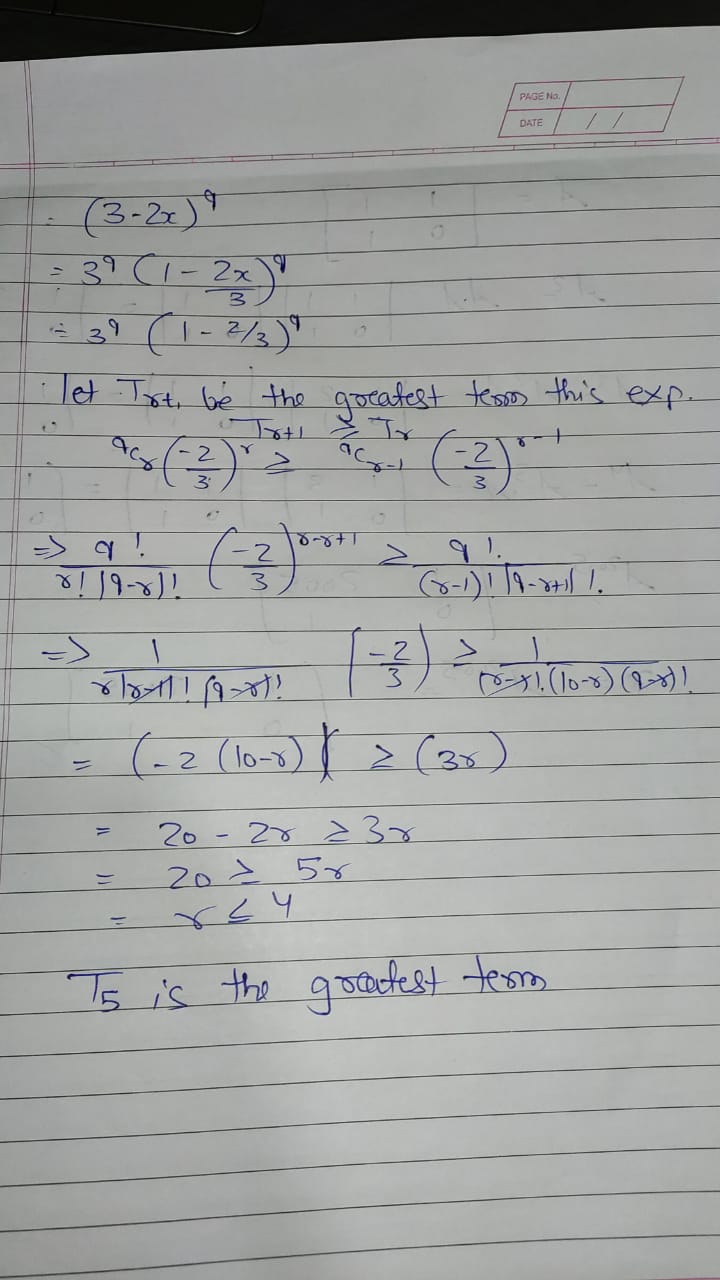 PAGE No.
DATE / /
= (3-2x)⁹
= 3⁹ (1 - 2x/3)⁹
= 3⁹ (1 - 2/3)⁹
let Tr+1 be the greatest term this exp.
∵ Tr+1 ≥ Tr
⁹Cr (-2/3)^r ≥ ⁹Cr-1 (-2/3)^r-1
=> 9!/r! (9-r)! (-2/3)^r-r+1 ≥ 9!/(r-1)! (9-r+1)!
=> 1/r(r-1)! (9-r)! (-2/3) ≥ 1/(r-1)! (10-r) (9-r)!
= (-2 (10-r)) ≥ (3r)
= 20 - 2r ≥ 3r
= 20 ≥ 5r
= r ≤ 4
T5 is the greatest term